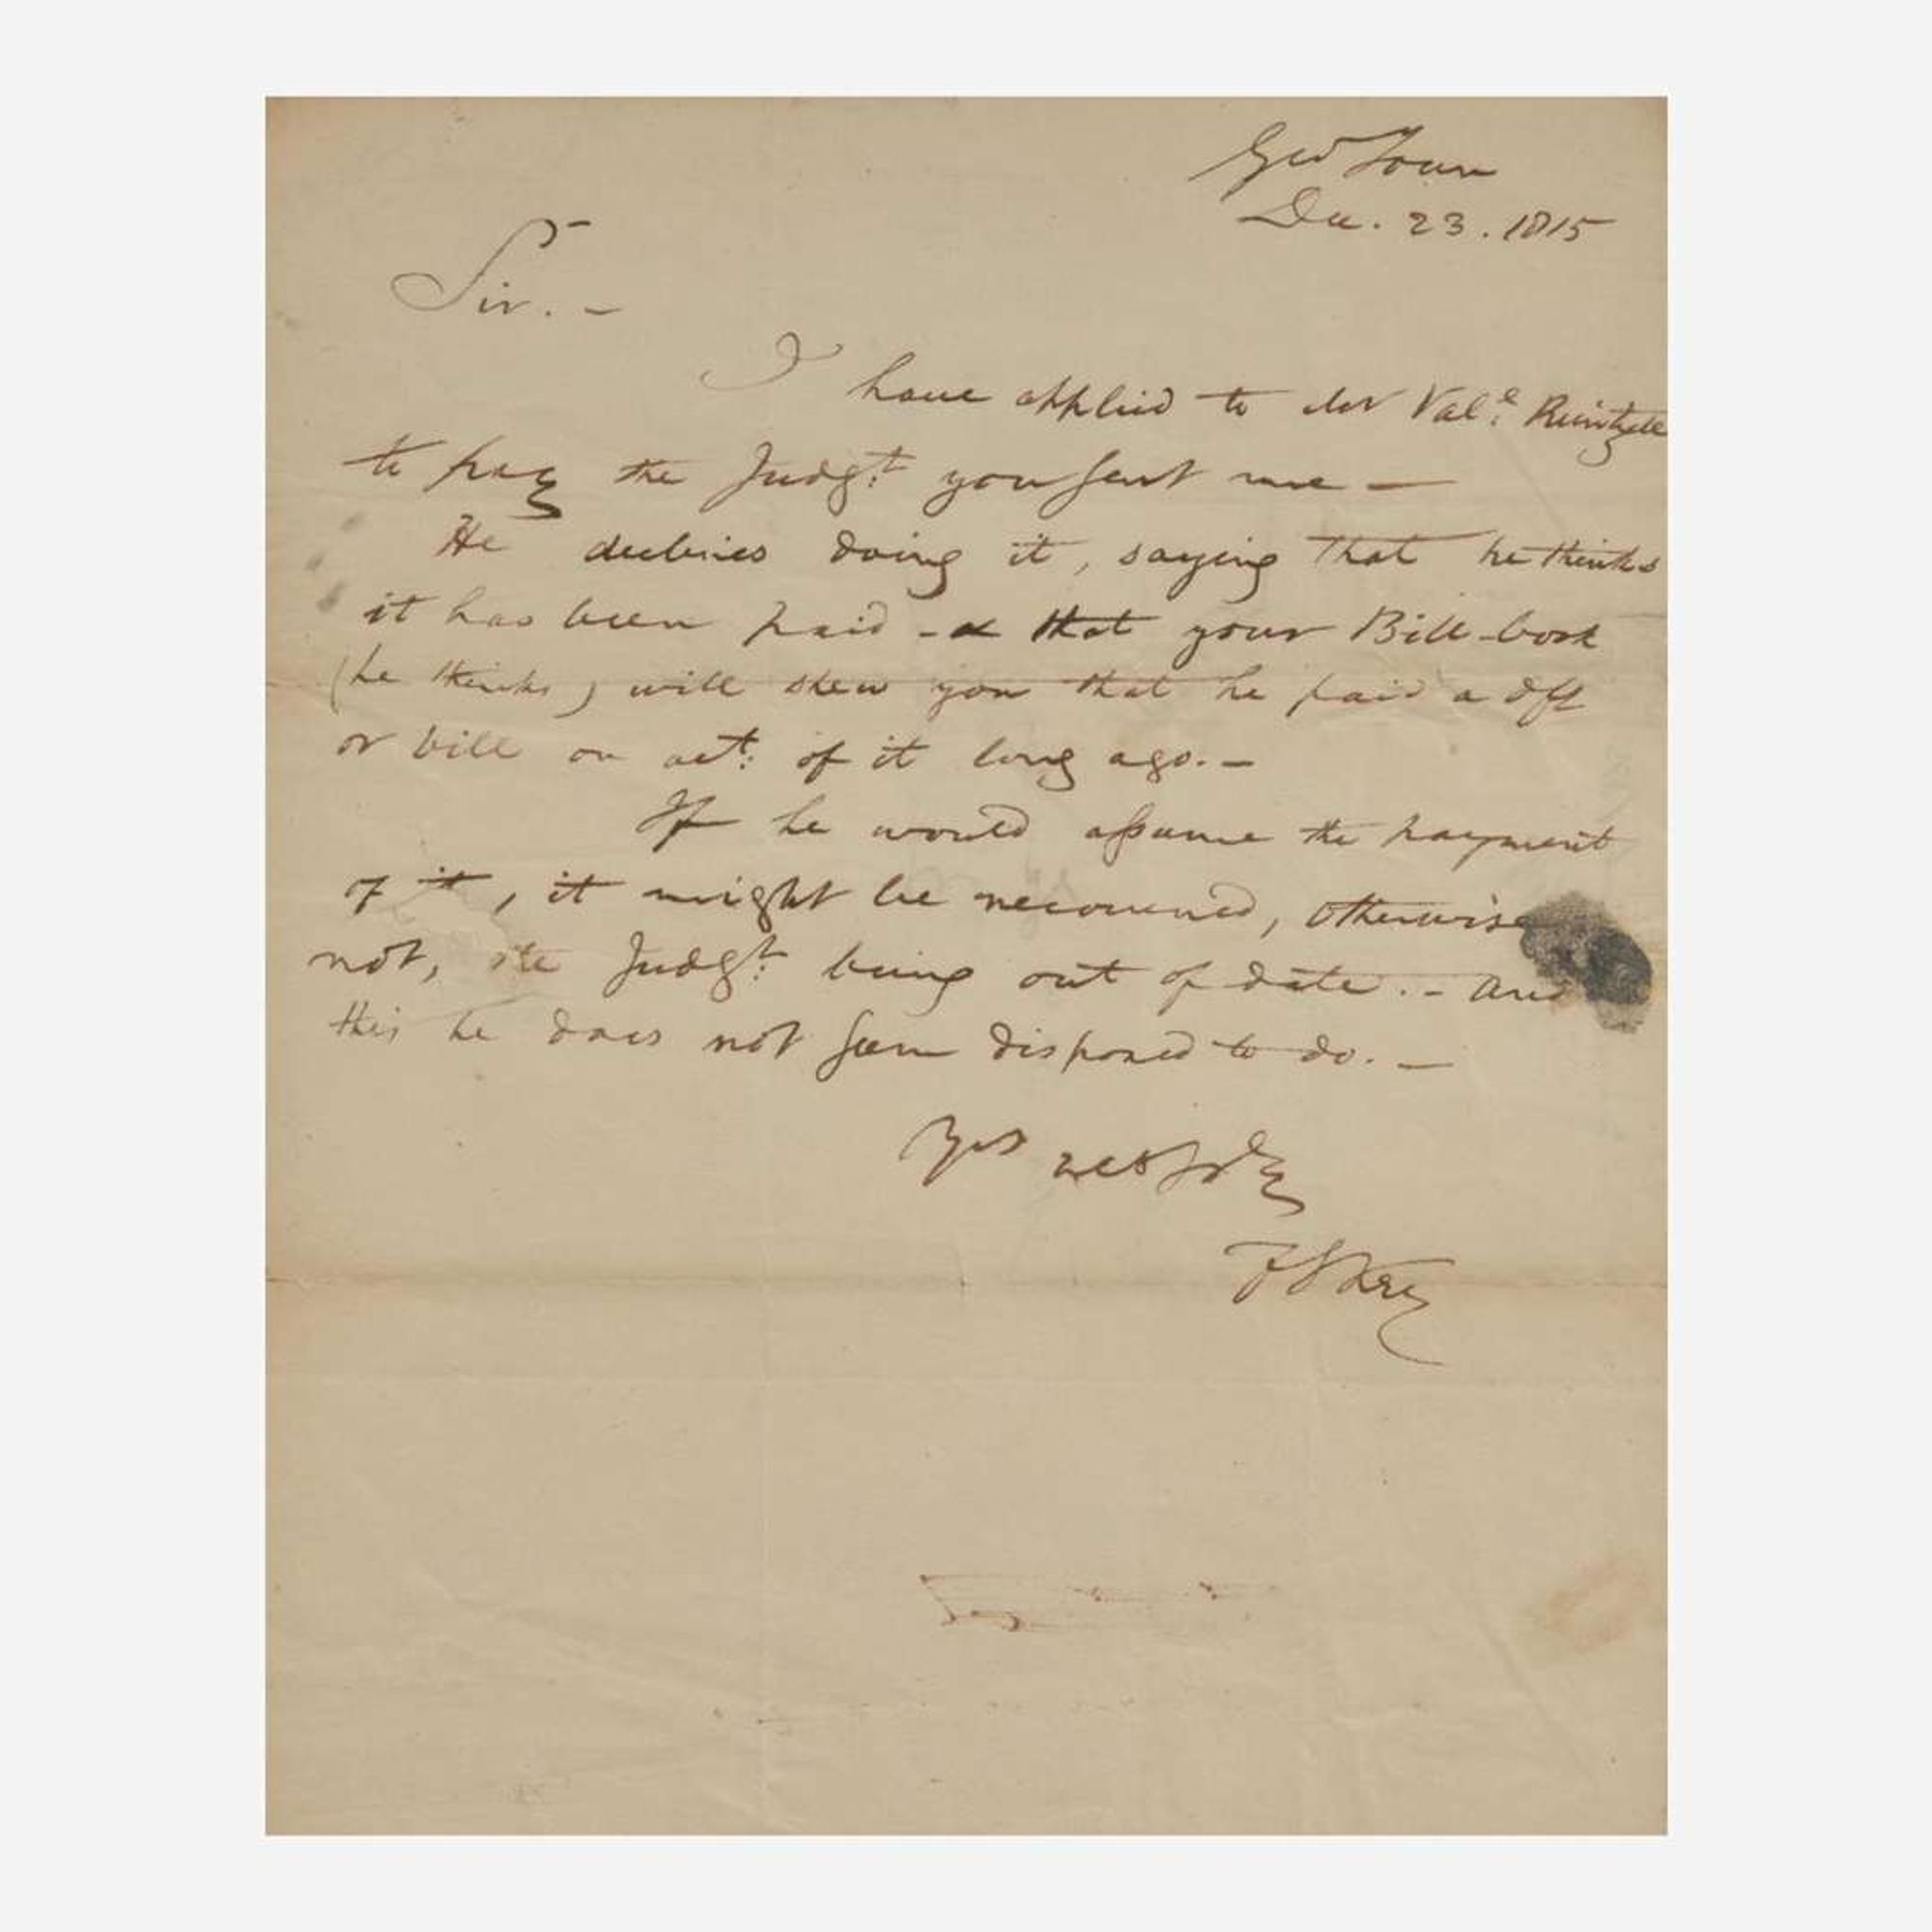 Geo Town
Dec. 23. 1815
Sir. -
I have applied to Mr Val.e Reintzell
to pay the Judgt. you sent me -
He declines doing it, saying that he thinks
it has been paid - & that your Bill-book
(he thinks) will shew you that he paid a dft
or bill on act: of it long ago. -
If he would assume the payment
of it, it might be recovered, otherwise
not, the Judgt. being out of date. - and
this he does not seem disposed to do. -
Yrs
F S Key